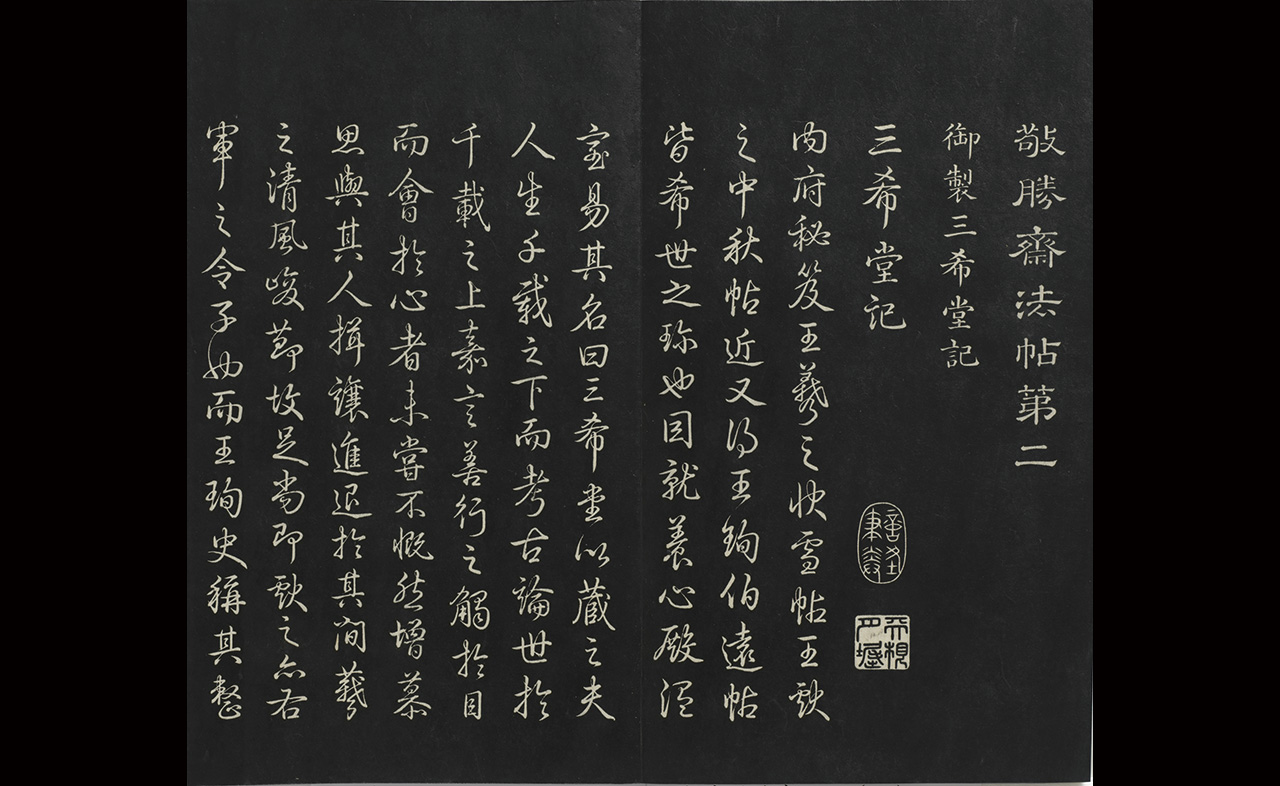 敬勝齋法帖第二
御製三希堂記
三希堂記
內府秘笈王羲之快雪帖王獻
之中秋帖近又得王珣伯遠帖
皆希世之珎也因就養心殿溫
室易其名曰三希堂以藏之夫
人生千載之下而考古論世於
千載之上嘉言善行之觸於目
而會於心者未嘗不慨然增慕
思與其人揖讓進退於其間羲
之清風峻節故足尚即獻之亦右
軍之令子也而王珣史稱其整